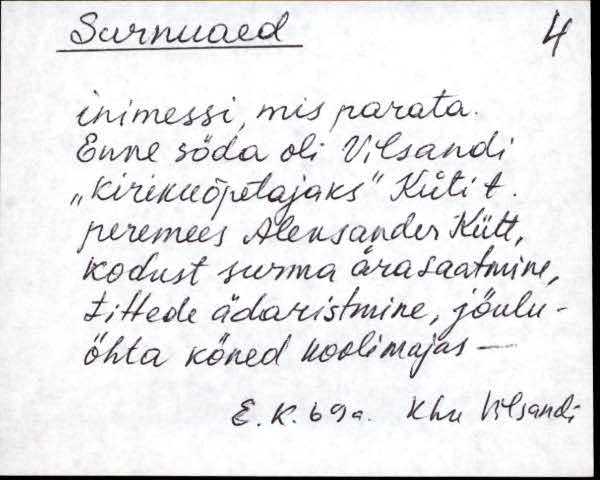 Surnuaed
4
inimessi, mis parata.
Enne sõda oli Vilsandi
„kirikuõpetajaks" Küti t.
peremees Aleksander Kütt,
kodust surma ärasaatmine,
tittede ädaristmine, jõulu-
õhta kõned koolimajas —
E. K. 69a. Khn Vilsandi